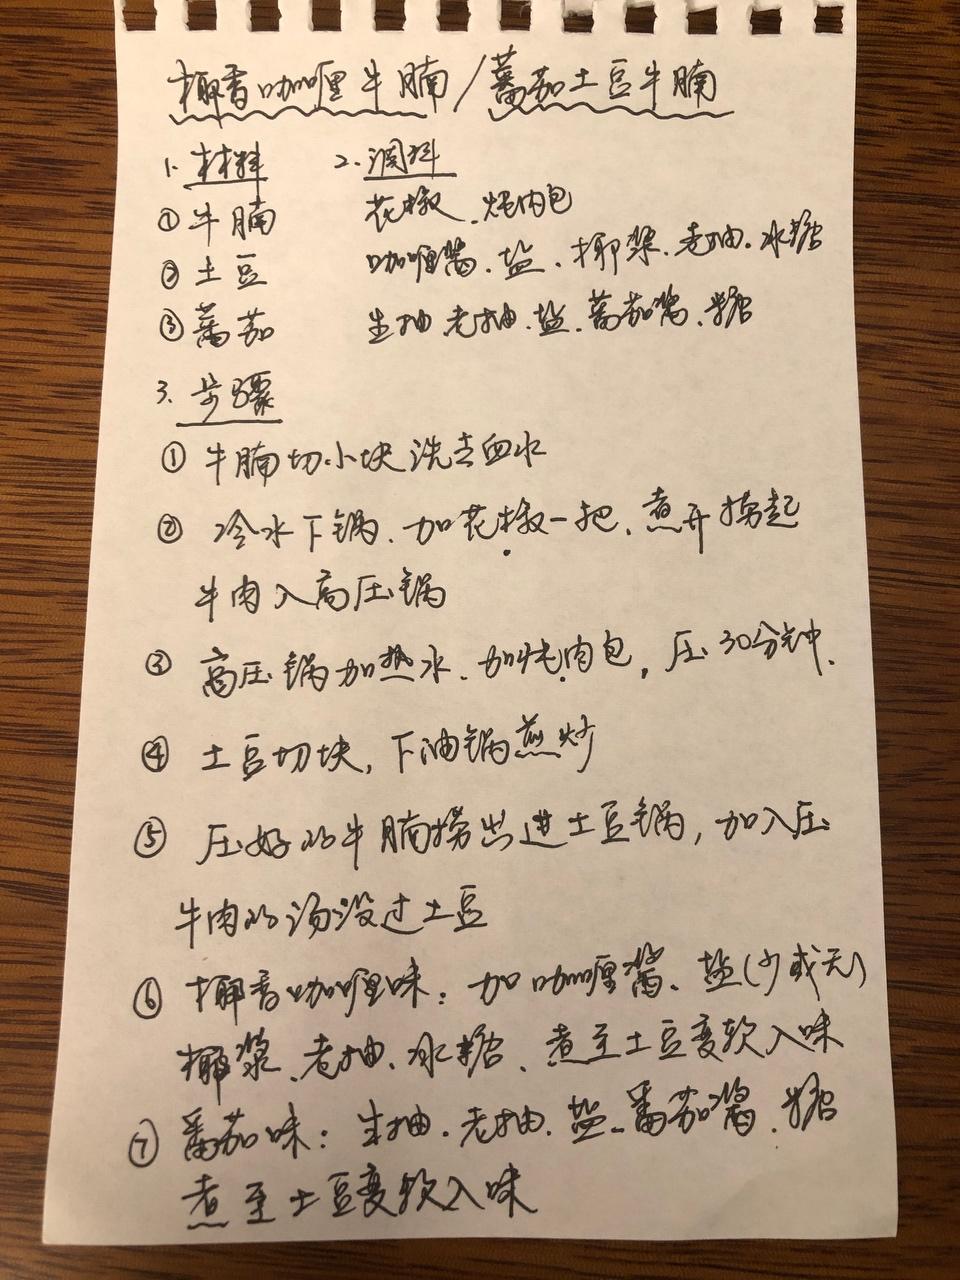 椰香咖喱牛腩/蕃茄土豆牛腩
1. 材料 2. 调料
① 牛腩 花椒、炖肉包
② 土豆 咖喱酱、盐、椰浆、老抽、冰糖
③ 蕃茄 生抽、老抽、盐、蕃茄酱、糖
3. 步骤
① 牛腩切小块洗去血水
② 冷水下锅、加花椒一把、煮开捞起
牛肉入高压锅
③ 高压锅加热水、加炖肉包，压30分钟、
④ 土豆切块，下油锅煎炒
⑤ 压好的牛腩捞出进土豆锅，加入压
牛肉的汤没过土豆
⑥ 椰香咖喱味：加咖喱酱、盐(少或无)
椰浆、老抽、冰糖、煮至土豆变软入味
⑦ 番茄味：生抽、老抽、盐、番茄酱、糖
煮至土豆变软入味